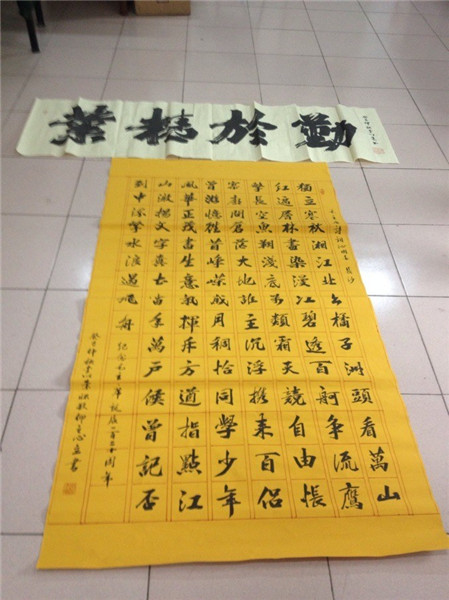 業精於勤
毛主席詩詞沁園春 長沙
獨立寒秋湘江北去橘子洲頭看萬山
紅遍層林盡染漫江碧透百舸爭流鷹
擊長空魚翔淺底万類霜天競自由悵
寥廓問蒼茫大地誰主沉浮携來百侶
曾遊憶往昔崢嶸歲月稠恰同學少年
風華正茂書生意氣揮斥方遒指點江
山激揚文字糞土當年萬戶侯曾記否
到中流擊水浪遏飛舟 紀念毛主席誕辰一百二十周年